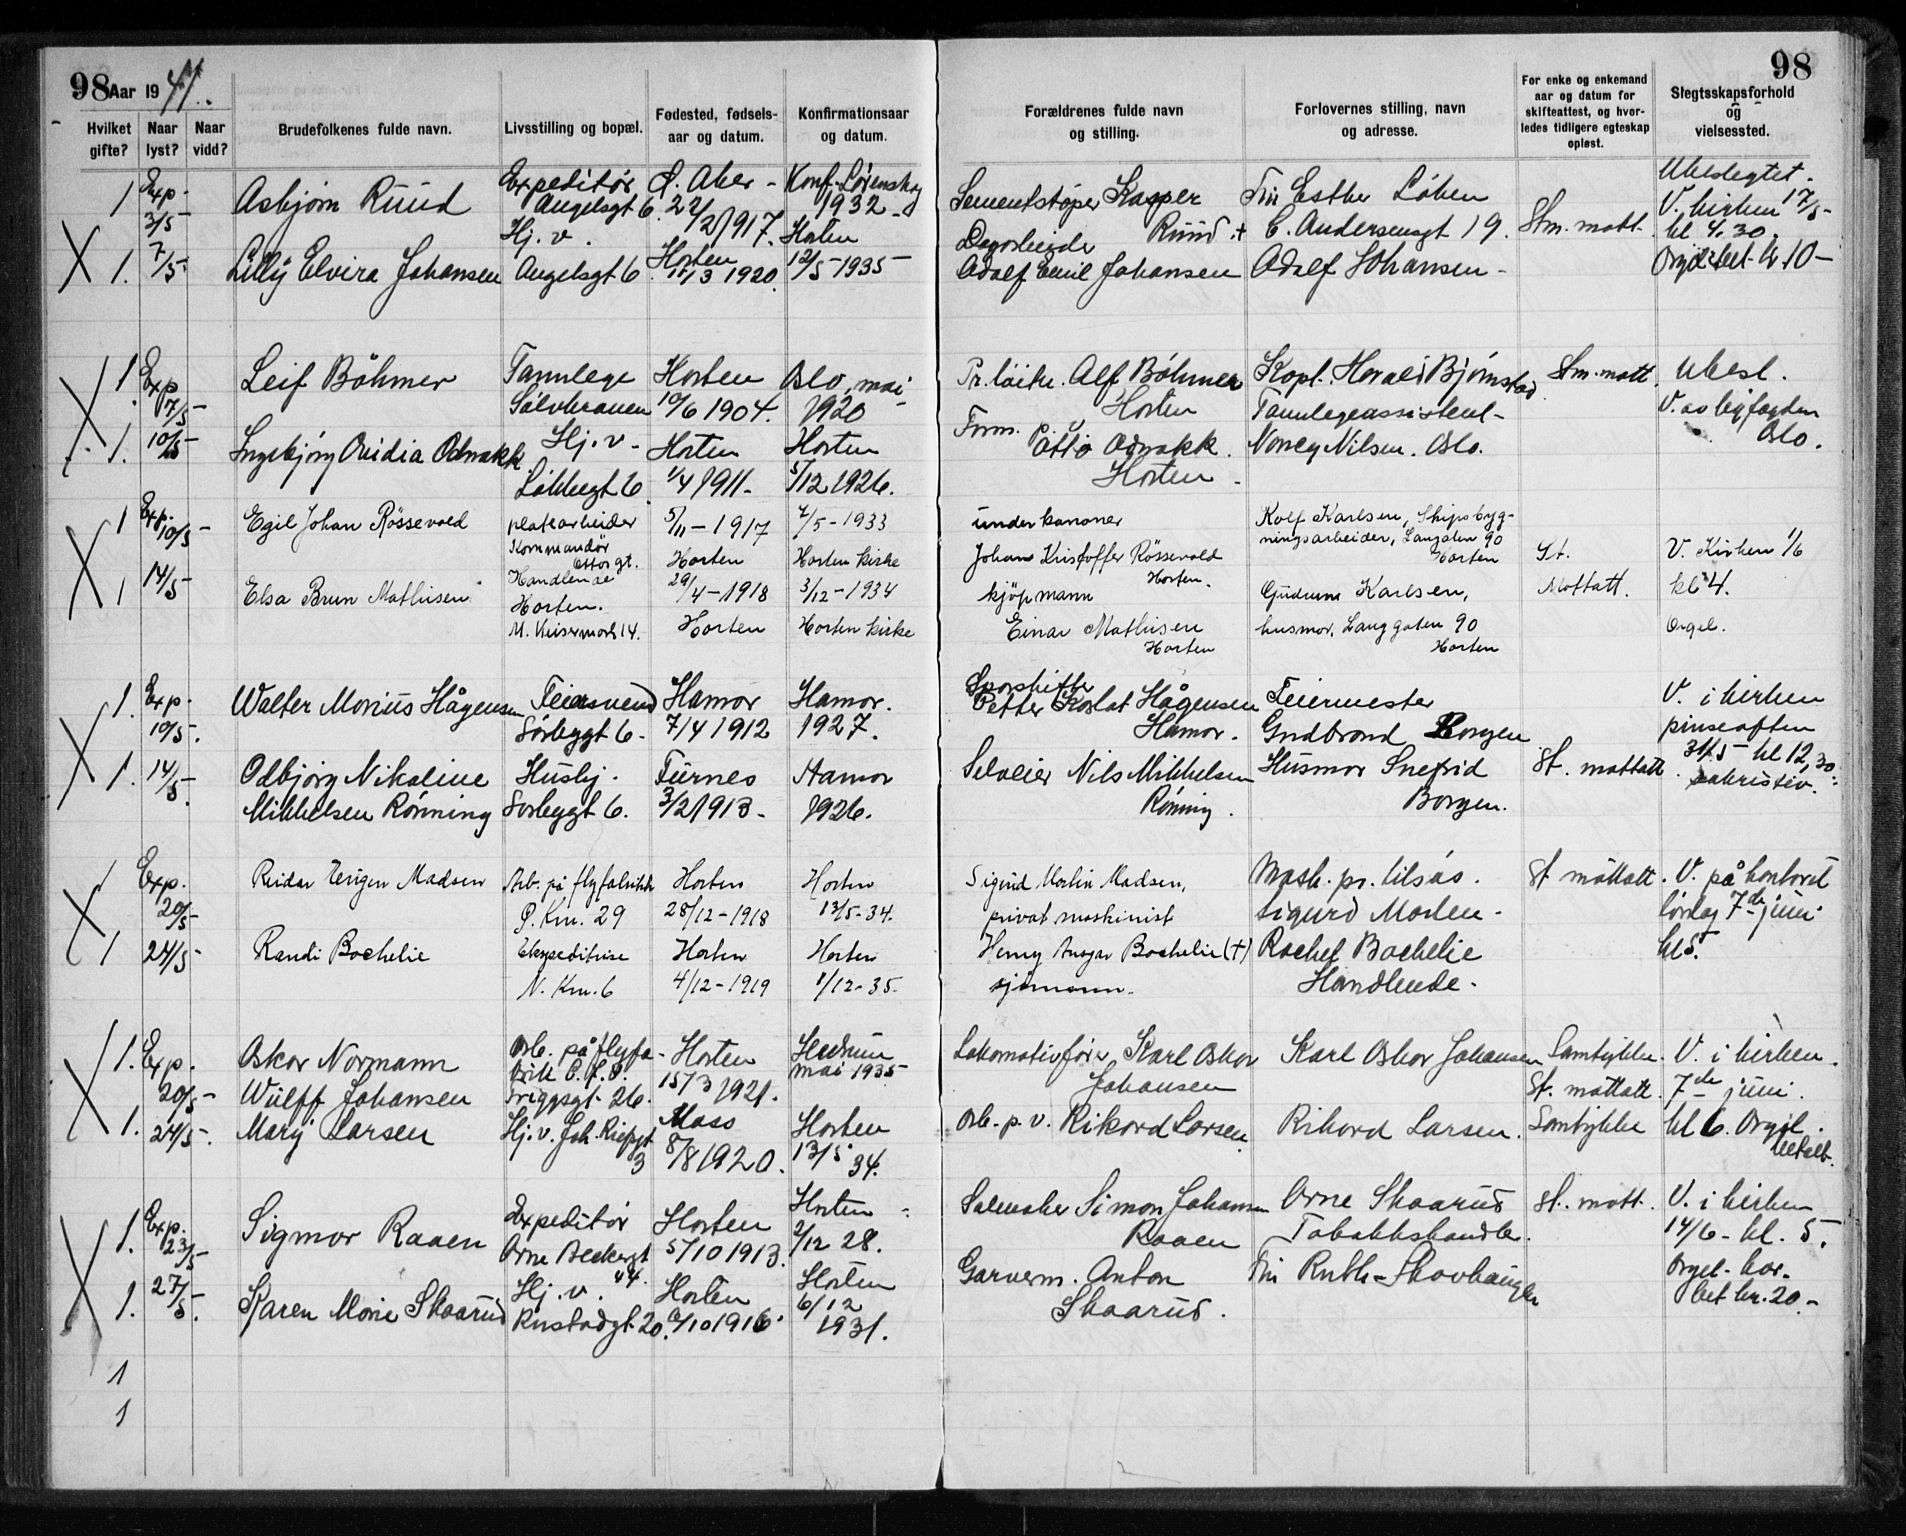 98 Aar 1941.
98
Hvilket gifte?
Naar lyst?
Naar vidd?
Brudefolkenes fulde navn.
Livsstilling og bopæl.
Fødested, fødsels-
aar og datum.
Konfirmationsaar
og datum.
Forældrenes fulde navn
og stilling.
Forlovernes stilling, navn
og adresse.
For enke og enkemand
aar og datum for
skifteattest, og hvor-
ledes tidligere egteskap
opløst.
Slegtsskapsforhold
og
vielsessted.
1 Exp. 3/5
Asbjørn Ruud
Expeditør
Augelsgt 6.
Ø. Aker -
22/2 1917.
Konf. Lørenskog
1932 -
Sementstøper Kasper
Ruud +
Frk Esther Løken
C. Andersensgt 19.
Stm. mott.
Ubeslegtet.
V. kirken 17/5 -
kl 4.30.
X 1. 7/5
Lilly Elvira Johansen
Hj. v.
Augelsgt 6
Horten
11/3 1920.
Horten
12/5 1935
Adolf Emil Johansen
Adolf Johansen -
Orgel bet kr 10 -
X 1. Exp 7/5
Leif Böhmer
Tannlege
Sølvkronen
Horten
10/6 1904.
Oslo, mai
1920
Alf Böhmer
Horten
Kapt. Harald Bjørnstad
Tannlegeassistent -
Stm. mott.
Ubesl.
V. av byfogden
Oslo.
1. 10/5
Ingebjørg Ovidia Odnakk
Hj. v -
Løkkegt 6.
Horten
1/4 1911 -
Horten
5/12 1926.
Form.
Otto Odnakk.
Horten -
Nancy Nilsen. Oslo.
X 1 Exp. 10/5 -
Egil Johan Røssevold
platearbeider
Kommandør
5/11 - 1917
Horten
2/5 - 1933
Horten kirke
underkanoner
Johan Kristoffer Røssevold
Horten.
Rolf Karlsen, Skipsbyg-
ningsarbeider, Langgaten 90
Horten
St.
Mottatt.
V. Kirken 1/6
kl 4.
Orgel.
1 14/5
Elsa Brun Mathisen
Horten.
29/4 - 1918
Horten
3/12 - 1934
Horten kirke
kjøpmann
Einar Mathisen
Horten
Gudrun Karlsen,
husmor, Langgaten 90
Horten
X 1. Exp. 10/5.
Walter Marius Hågensen
Feiersvend
Sørbyggt 6 -
Hamar
7/4 1912
Hamar.
1927.
Petter Hågensen
Hamar.
Feiermester
Gudbrand Borgen
V. i kirken
pinseaften
31/5 kl 12,30
sakristiv.
1. 14/5
Odbjørg Nikoline
Mikkelsen Rønning
Husbj.
Sørbyggt 6.
Furnes
3/2 1913 -
Hamar
1926.
Selveier Nils Mikkelsen
Rønning.
Husmor Snefrid
Borgen.
St. mottatt
X 1 Exp. 20/5
Reidar Jørgen Madsen
Arb. på flyfabrikk
P. Km. 29
Horten
28/12 - 1918
Horten
13/5 - 34.
Sigurd Martin Madsen,
privat maskinist
Sigurd Madsen -
St mottatt.
V. på kontoret
lørdag 7de juni
kl 5.
1 24/5
Randi Bachelie
Ekspeditrise
N. Km. 6
Horten
4/12 - 1919
Horten
1/12 - 35.
Henry Ansgar Bachelie (+)
sjømann.
Rachel Bachelie
Handlende.
X 1. Exp. 20/5
Oskar Normann
Wulff Johansen
Arb. på flyfa-
brik
Friggsgt. 26.
Horten
15/3 1921.
Hedrum
mai 1935
Lokomotivfører Karl Oskar
Johansen
Karl Oskar Johansen
Samtykke.
St. mottatt.
V. i kirken.
7de juni.
1. 24/5.
Mary Larsen
Hj. v.
3
Moss
8/8 1920.
Horten
13/5 34.
Arb. p. v. Rikard Larsen
Rikard Larsen.
Samtykke
kl 6. Orgel.
betalt.
X 1. Exp. 23/5
Sigmor Raaen
Expeditør
Arne Beckersgt
44.
Horten
5/10 1913.
Horten -
2/12 28.
Salmaker Simon Johansen
Raaen
Arne Skaarud
Tobakkshandler.
St. mott.
V. i kirken
14/6 - kl. 5.
1. 27/5.
Karen Marie Skaarud
Hj. v.
Rustadgt 20.
Horten
/10 1916.
Horten
6/12
1931.
Garverm. Anton
Skaarud.
Frk Ruth Skovhaugen
Orgel-kor-
bet kr. 20 -
1
1